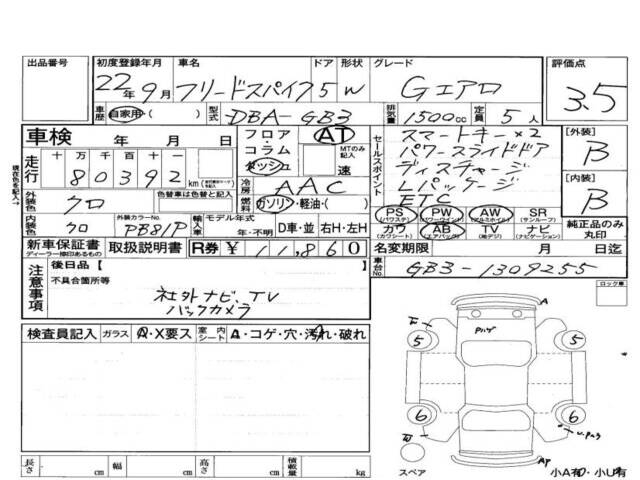 出品番号 初度登録年月 車名 ドア 形状 グレード 評価点
22年9月 フリードスパイク 5 W Gエアロ 3.5
車歴 自家用・( ) 型式 DBA-GB3 排気量 1500cc 定員 5人
車検 年 月 日
フロア・コラム ダッシュ AT MTのみ記入 速
セールスポイント
スマートキー×2
パワースライドドア
ディスチャージ
Lパッケージ
ETC
[外装] B
[内装] B
純正品のみ丸印
走行 十 万 千 百 十 一
80392 km
冷房 AAC
燃料 ガソリン・軽油・( )
外装色 クロ 色替車は色替と記入
内装色 クロ 外装カラーNo. PB81P
輸入車 モデル年式 年・不明 D車・並 右H・左H
PS (パワステ) PW (パワーウインド) AW (アルミホイル) SR (サンルーフ)
カワ (カワシート) AB (エアバッグ) TV (地デジ) ナビ (ナビゲーション)
新車保証書 ディーラー捺印あるもの 取扱説明書 R券 ¥11,860
名変期限 月 日迄
車台No. GB3-1309255
注意事項
後日品 [ ]
不具合箇所等
社外ナビ、TV
バックカメラ
ロック車
検査員記入 ガラス A・X要ス 室内 シート A・コゲ・穴・汚れ・破れ
A
5 5
6 6
スペア
小A有・小U有
長さ cm 幅 cm 高さ cm 積載量 kg
現在色を記入→